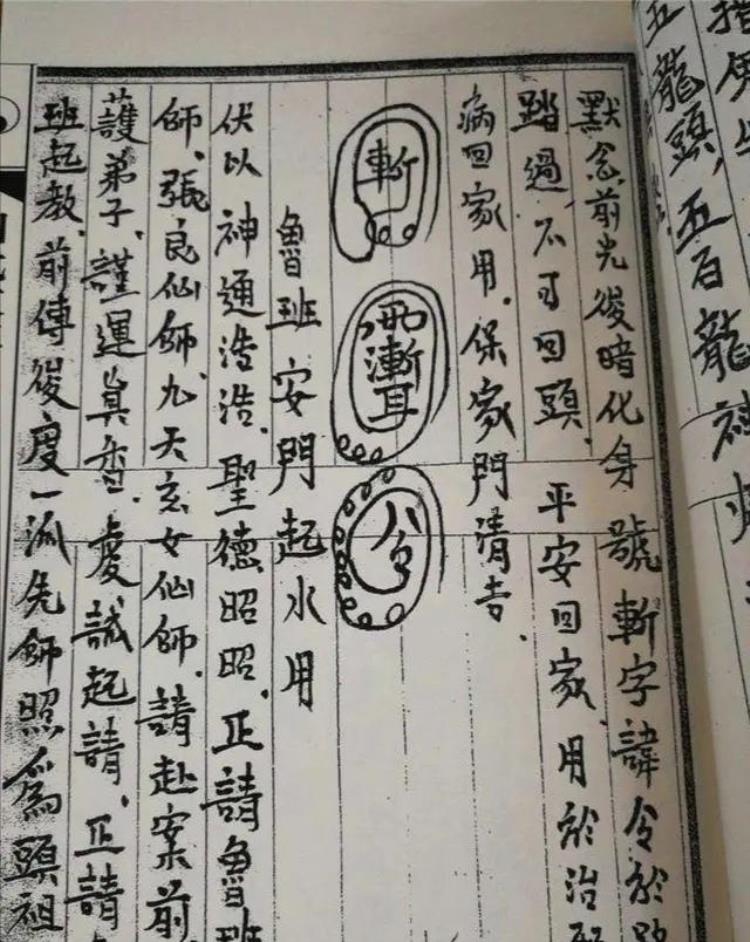 指
五龍頭,五百龍神
默念前光後暗化身號斬字諱令於
踏過不可回頭.平安回家.用於治
病回家用.保家門清吉.
斬
魯班安門起水用
伏以神通浩浩.聖德昭昭.正請魯班
師.張良仙師.九天玄女仙師.請赴案前
護弟子.謹運真香.虔誠起請.正請
班起教.前傳後度一派先師照為頭祖